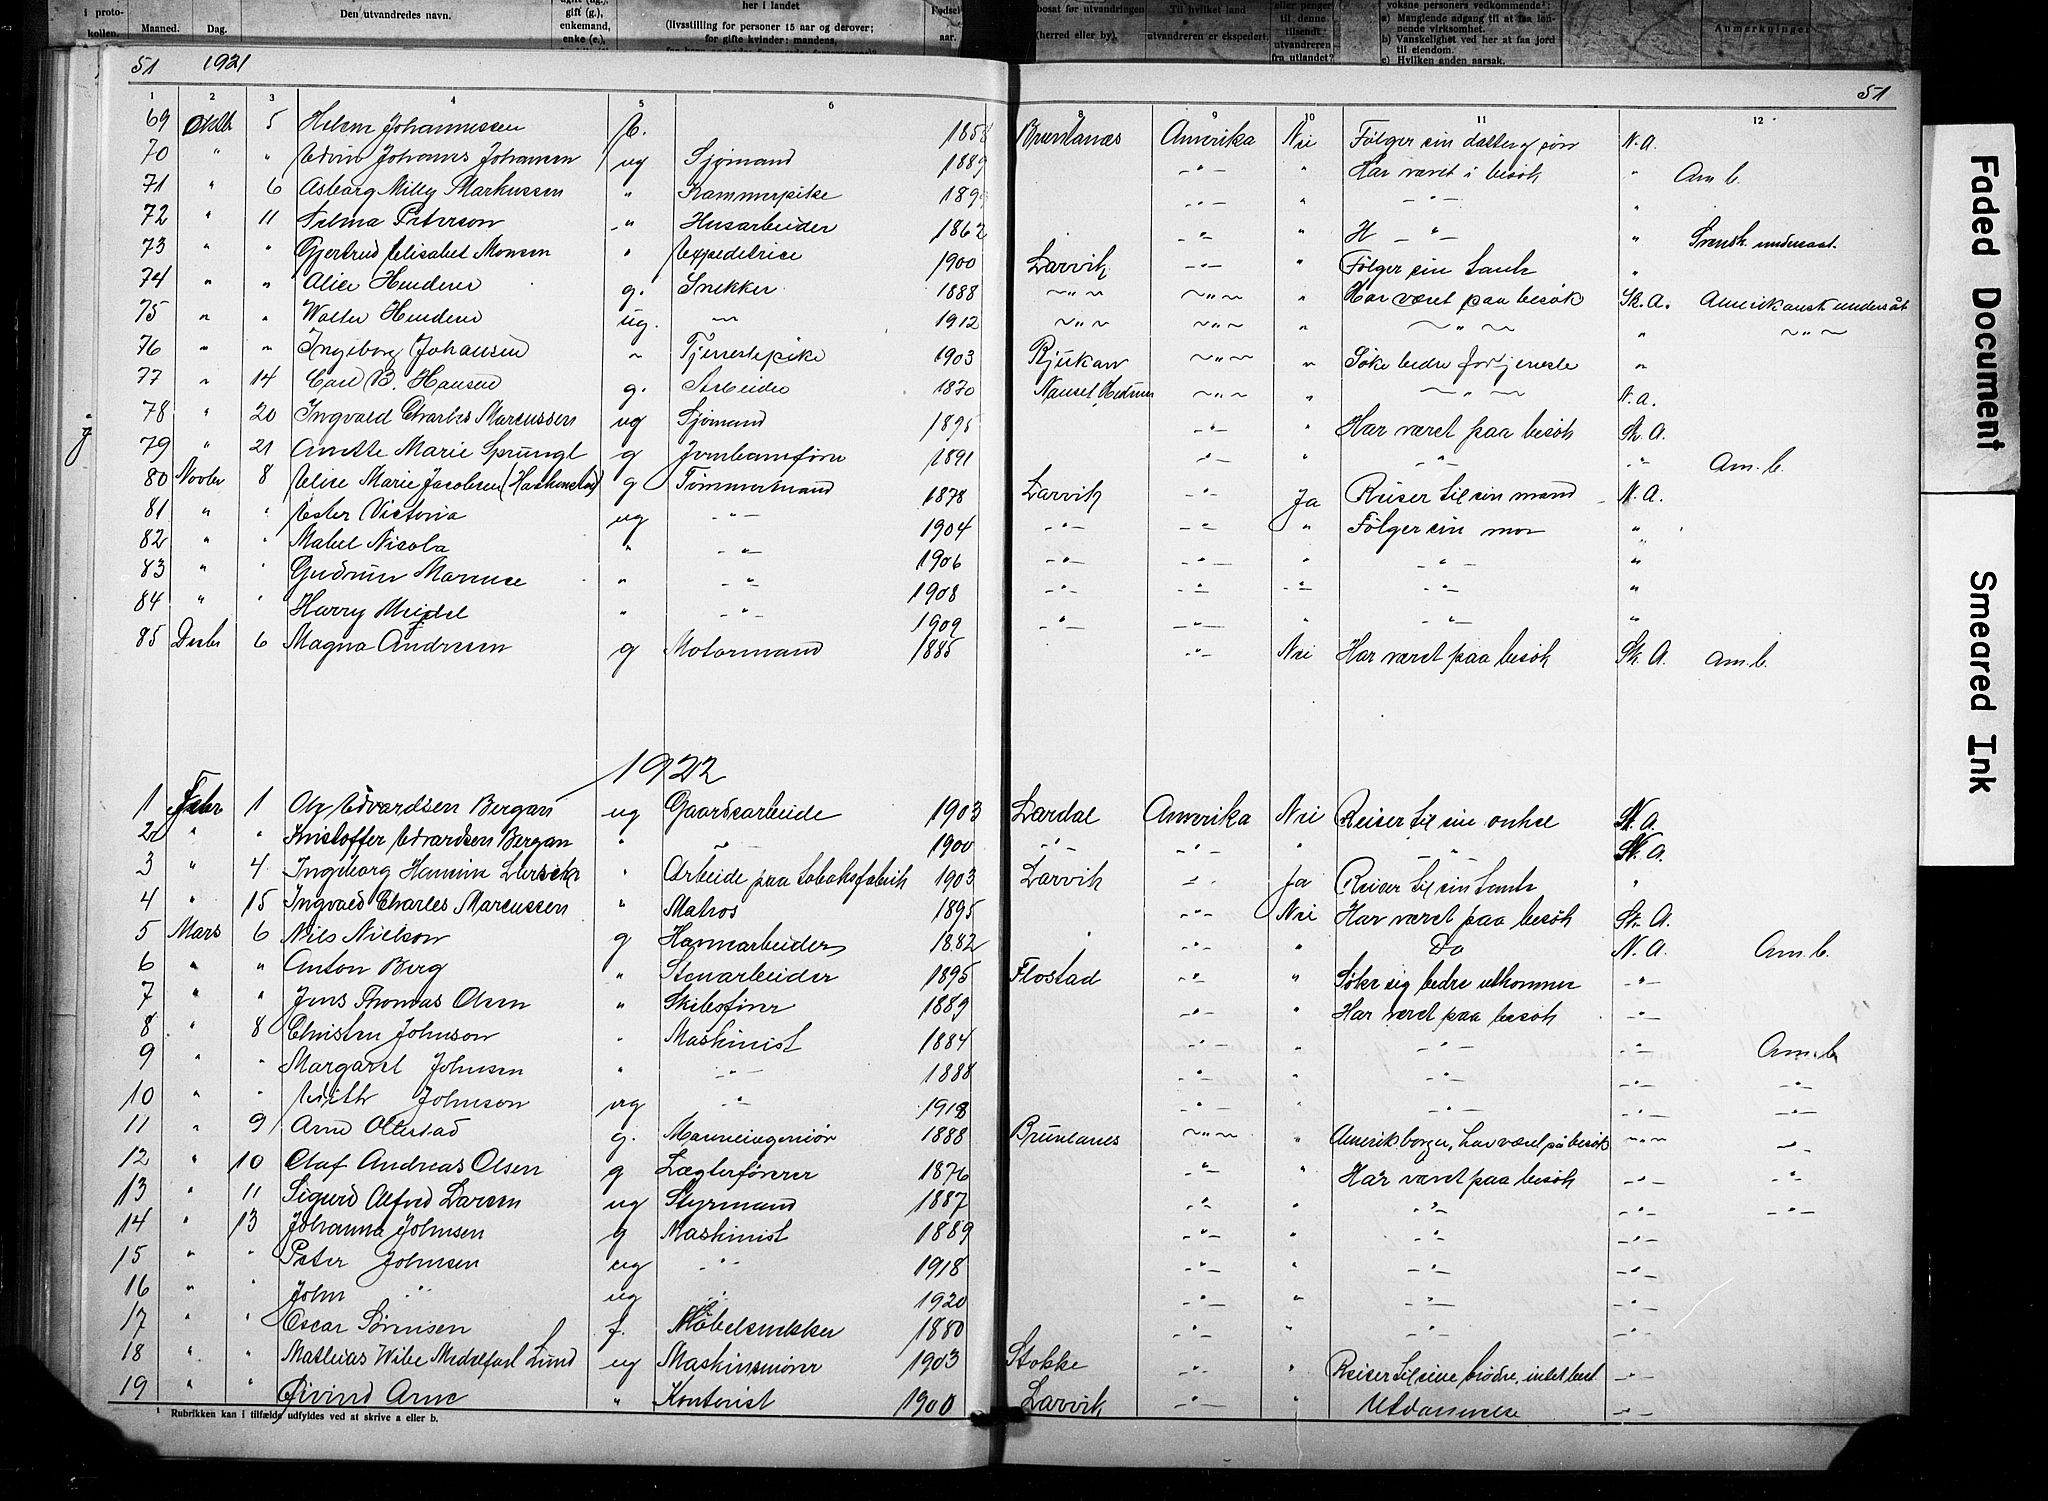 i proto-
kollen.
Maaned. Dag.
Den utvandredes navn.
gift (g.),
enkemand,
enke (e.),
her i landet
(livsstilling for personer 15 aar og derover;
for gifte kvinder: mandens,
Fødsels-
aar.
bosat før utvandringen
(herred eller by).
Til hvilket land
utvandreren er ekspedert.
eller penger
til denne
tilsendt
utvandreren
fra utlandet?
voksne personers vedkommende:
a) Manglende adgang til at faa løn-
nende virksomhet.
b) Vanskelighet ved her at faa jord
til eiendom.
c) Hvilken anden aarsak.
Anmerkninger
51 1921 51
1 2 3 4 5 6 8 9 10 11 12
69 Oktb 5 Helene Johannessen E. 1858 Brunlanæs Amerika Nei Følger sin datter og søn N.A.
70 " " Edvin Johannes Johansen ug Sjømand 1889 -"- " Har været i besøk " Am b.
71 " 6 Asborg Milly Markussen " Kammerpike 189 -"- " -"- "
72 " 11 Selma Peterson " Husarbeider 1862 -"- " H -"- " Svensk undersaat.
73 " " Gjertrud Elisabet Monsen " Expeditrice 1900 Larvik -"- " Følger sin tante "
74 " " Alice g. Snekker 1888 -"- -"- " Har været paa besøk Sk.A. Amerikansk undersåt
75 " " Walter ug. - 1912 -"- -"- " -"- " -"-
76 " " Ingeborg Johansen " Tjenestepike 1903 Rjukan -"- " Søke bedre fortjeneste "
77 " 14 Carl B. Hansen g. Arbeider 1870 Nanset, Hedrum -"- " -"- N.A.
78 " 20 Ingvald Charles Marcussen ug Sjømand 1895 -"- " Har været paa besøk Sk.A.
79 " 21 Anette Marie Sprungl g 1891 -"- " -"- " Am.b.
80 Novbr 8 Elise Marie Jacobsen g Tømmermand 1878 Larvik -"- Ja Reiser til sin mand N.A.
81 " " Ester Victoria ug -"- 1904 -"- -"- " Følger sin mor "
82 " " Mabel Nicola " -"- 1906 -"- -"- -"- "
83 " " Gudrun Marense " -"- 1908 -"- -"- -"- -"- "
84 " " Harry Meidel " -"- 1909 -"- -"- " -"- "
85 Desbr 6 Magna Andresen g Motormand 1885 -"- Nei Har været paa besøk Sk.A. Am.b.
1922
1 Febr 1 Ole Edvardsen Bergan ug Gaardsarbeide 1903 Lardal Amerika Nei Reiser til sin onkel St.A.
2 " " Kristoffer Edvardsen Bergan " -"- 1900 -"- -"- " -"- St.A.
3 " 4 Ingeborg " Arbeide paa tobaksfabrik 1903 Larvik -"- Ja Reiser til sin tante "
4 " 15 Ingvald Charles Marcussen " Matros 1895 -"- Nei Har været paa besøk Sk.A.
5 Mars 6 Nils Nielson g Havnarbeider 1882 -"- " Do N.A. Am.b.
6 " " Anton Berg " Stenarbeider 1895 Flostad -"- " Søke sig bedre utkomme -"-
7 " " Jens Thomas Olsen " Skibsfører 1889 -"- " Har været paa besøk -"-
8 " 8 Christen Johnson " Maskinist 1884 -"- " -"- -"- Am.b
9 " " Margaret Johnsen " -"- 1888 -"- " -"- -"- -"-
10 " " Edith Johnson ug -"- 1918 -"- " -"- -"- -"-
11 " 9 Arne Ollestad g. Marineingeniør 1888 Brunlanes -"- " Amerik borger, har været på besøk -"- -"-
12 " 10 Olaf Andreas Olsen g Lægterfører 1876 -"- " Har været paa besøk -"- -"-
13 " 11 Sigurd Alfred Larsen ug Styrmand 1887 -"- " -"- -"- -"-
14 " 13 Johanna Johnsen g Maskinist 1889 -"- " -"- -"-
15 " " Peter Johnsen ug -"- 1918 -"- " -"- -"-
16 " " John -"- ug -"- 1920 -"- " -"- -"-
17 " " Oscar Sørensen f. Møbelsnekker 1880 -"- " -"- -"-
18 " " Mathias Wibe Lund ug Maskinsmører 1903 Stokke -"- " Reiser til sine brødre, intet best -"-
19 " " Øivind Arne " Kontorist 1900 Larvik -"- " Utdannelse -"-
1 Rubrikken kan i tilfælde utfyldes ved at skrive a eller b.
Faded Document
Smeared Ink